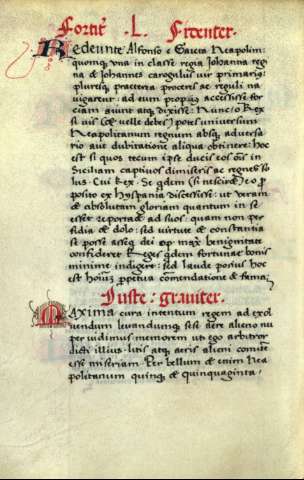 Fortit̃ . L . Frẽenter.
Redeunte Alfonso e Gaieta Neapolim:
quomqz vna in classe regia Iohanna regi
na et Iohannes caropilus vir primarius:
pluresqz praeterea proceres ac reguli na
vigarent: ad eum propius accessisse for
tem aiunt atqz dixisse: Nunc o Rex
si uis (et velle debes) potes uniuersum
Neapolitanum regnum absqz aduersa
rio aut dubitatione aliqua obtinere: hoc
est si quos tecum ipse duces eos oẽs in
Siciliam captiuos dimiseris ac regnes so
lus. Cui Rex: Se qdem (si nescirẽt) eo p̃
posito ex Hyspania discessisse: ut veram
et absolutam gloriam quantum in se
esset reportaret ad suos: quam non per
fidia et dolo: sed virtute et constantia
se posse asseqi dei op. max. benignitate
confideret Reges qdem fortunae bonis
minime indigere: sed laude potius hoc
est hoĩum perpetua comendatione et fama;
Iuste : grauiter.
MAxima cura intentum regem ad exol
uendum leuandumqz sese aere alieno nu
per uidimus: memorem uti ego arbitror
dicti illius: litis atqz aeris alieni comitẽ
esse miseriam. Per bellum etenim Nea
politanum quinqz et quinquaginta